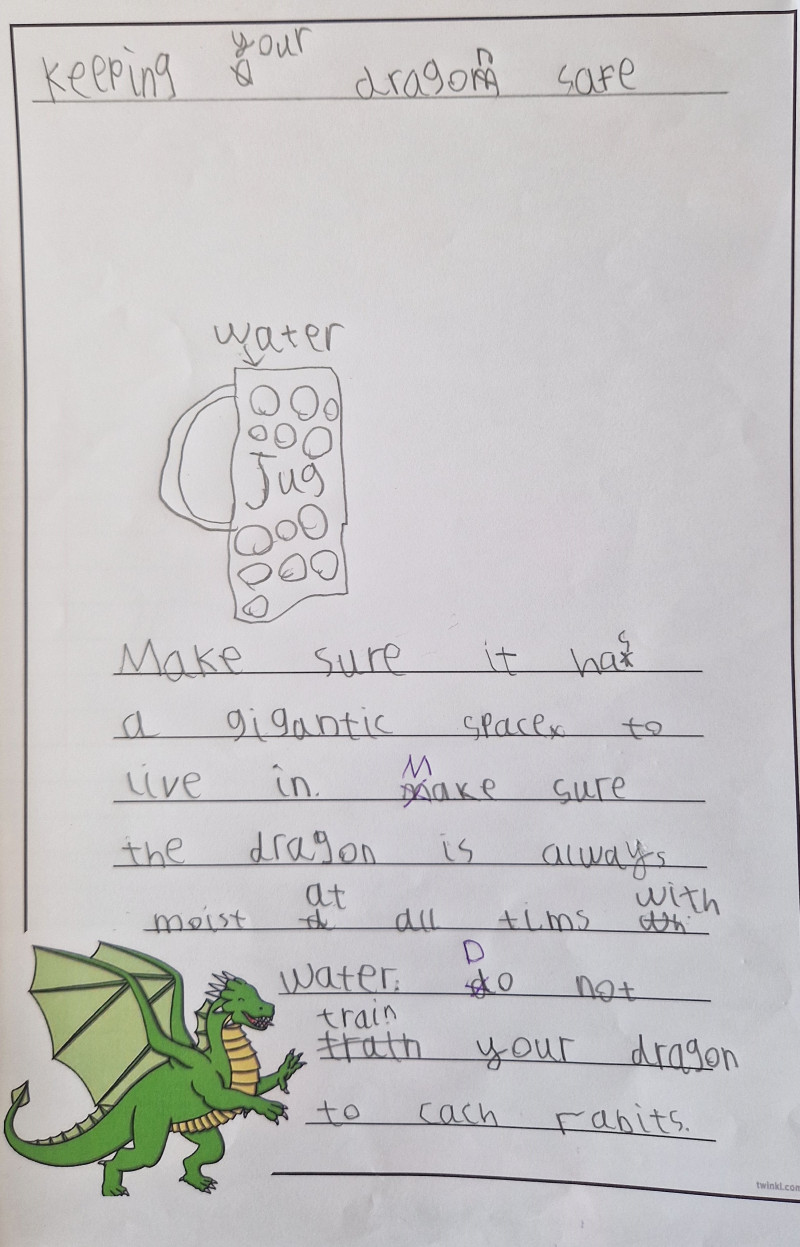 keeping your dragon safe
water
Jug
Make sure it has
a gigantic space to
live in. Make sure
the dragon is always
moist at all tims with
water. Do not
train your dragon
to cach rabits.
twinkl.com